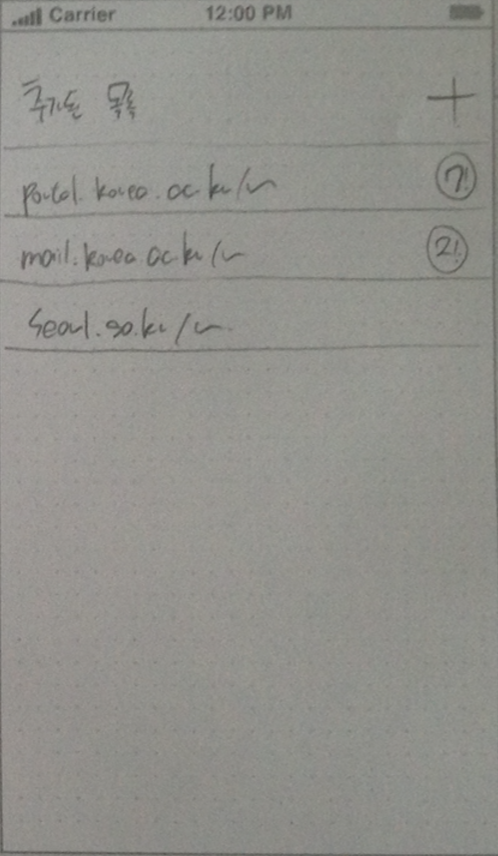 Carrier 12:00 PM
추가된 목록 +
portal.korea.ac.kr/~ 7!
mail.korea.ac.kr/~ 2!
seoul.go.kr/~